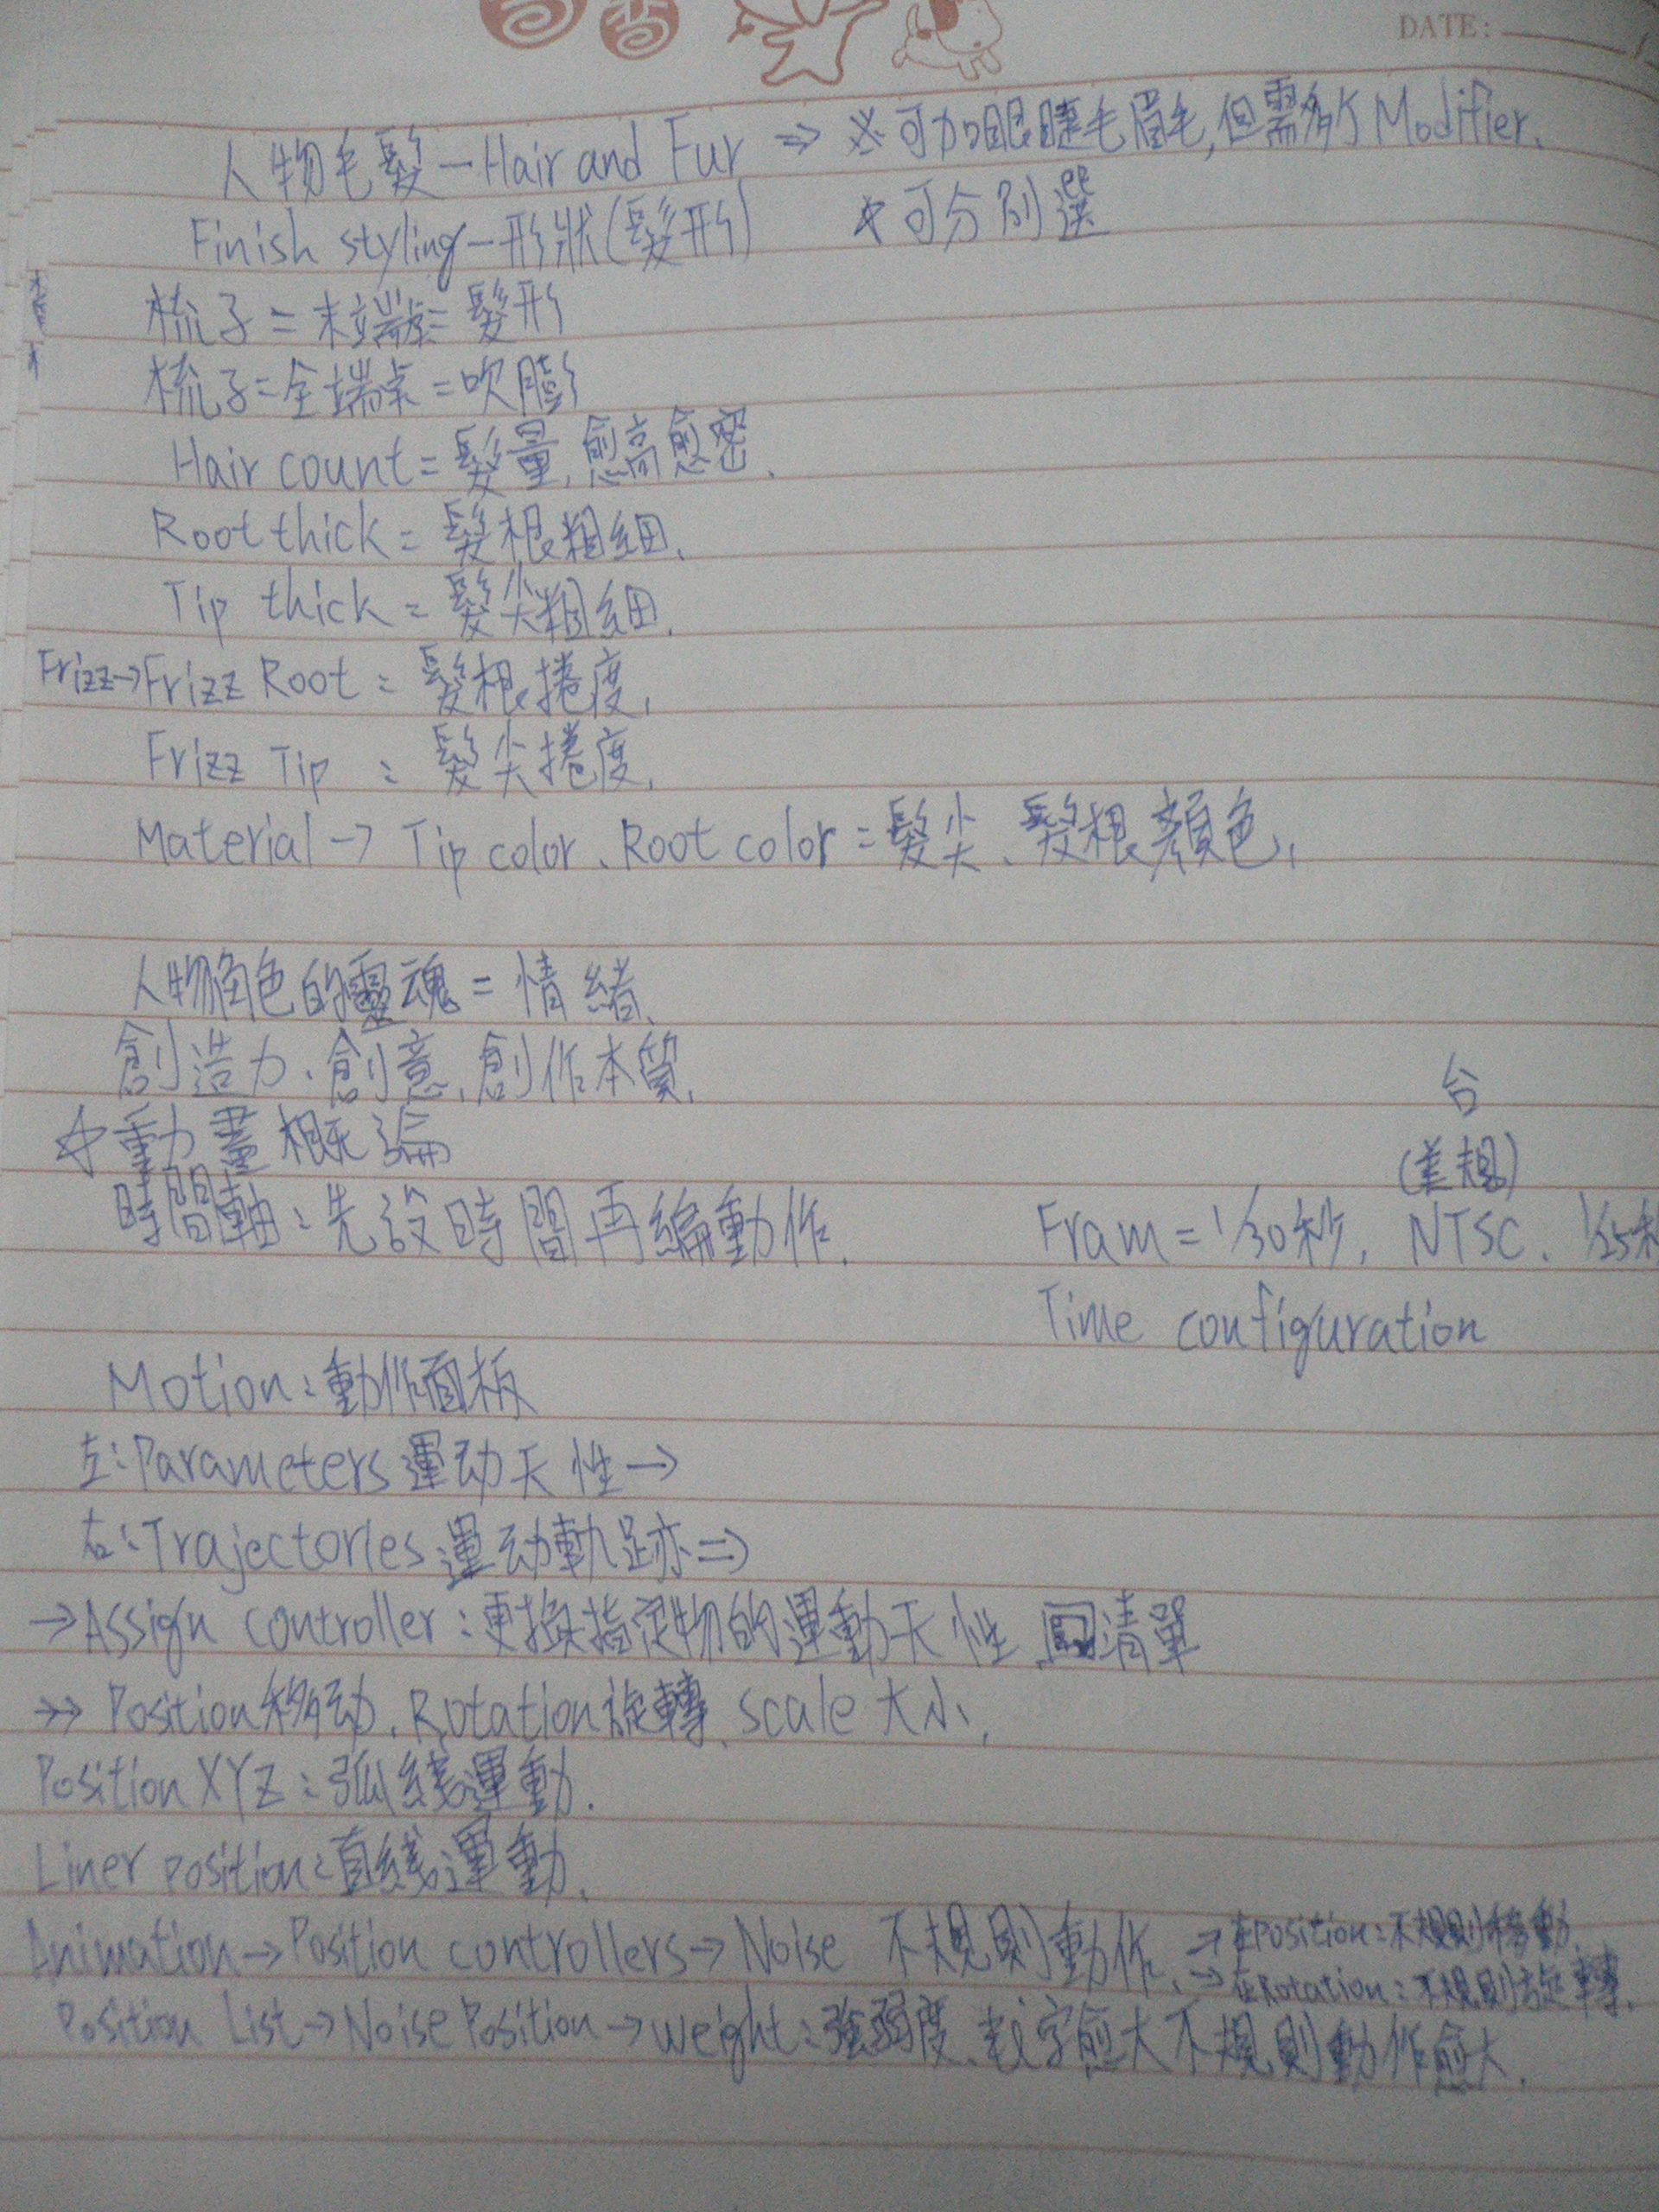 DATE:
人物毛髮-Hair and Fur ⇒ ※可加眼睫毛眉毛,但需多个Modifier.
Finish styling-形狀(髮形) ☆可分別選
梳子=末端=髮形
梳子=全端点=吹膨
Hair count=髮量,愈高愈密、
Root thick=髮根粗細、
Tip thick=髮尖粗細、
Frizz→Frizz Root=髮根捲度,
Frizz Tip=髮尖捲度,
Material→Tip color、Root color=髮尖、髮根顏色,
人物角色的靈魂=情緒、
創造力、創意、創作本質,
台
☆動畫概論
(美規)
時間軸:先設時間再編動作. Fram=1/30秒, NTSC、1/25秒
Time configuration
Motion:動作面板
左:Parameters運动天性→
右:Trajectories運动軌跡⇒
→Assign controller:更換指定物的運動天性、清單
→→Position移动、Rotation旋轉、scale大小,
Position XYZ:弧綫運動.
Liner position:直綫運動,
Animation→Position controllers→Noise 不規則動作、→在Position:不規則移動.
→在Rotation:不規則旋轉.
Position List→Noise Position→weight:強弱度、数字愈大不規則動作愈大.